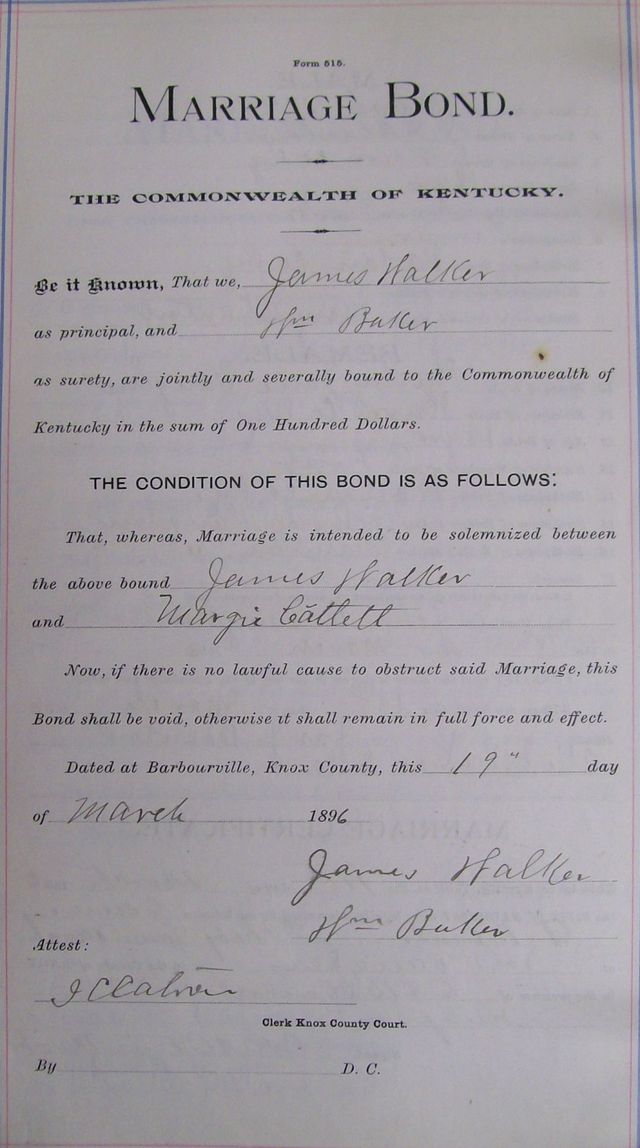 Form 515.
MARRIAGE BOND.
THE COMMONWEALTH OF KENTUCKY.
Be it Known, That we, James Walker
as principal, and Wm Baker
as surety, are jointly and severally bound to the Commonwealth of
Kentucky in the sum of One Hundred Dollars.
THE CONDITION OF THIS BOND IS AS FOLLOWS:
That, whereas, Marriage is intended to be solemnized between
the above bound James Walker
and Margie Catlett
Now, if there is no lawful cause to obstruct said Marriage, this
Bond shall be void, otherwise it shall remain in full force and effect.
Dated at Barbourville, Knox County, this 19" day
of March 1896
James Walker
Wm Baker
Attest:
Clerk Knox County Court.
By D. C.